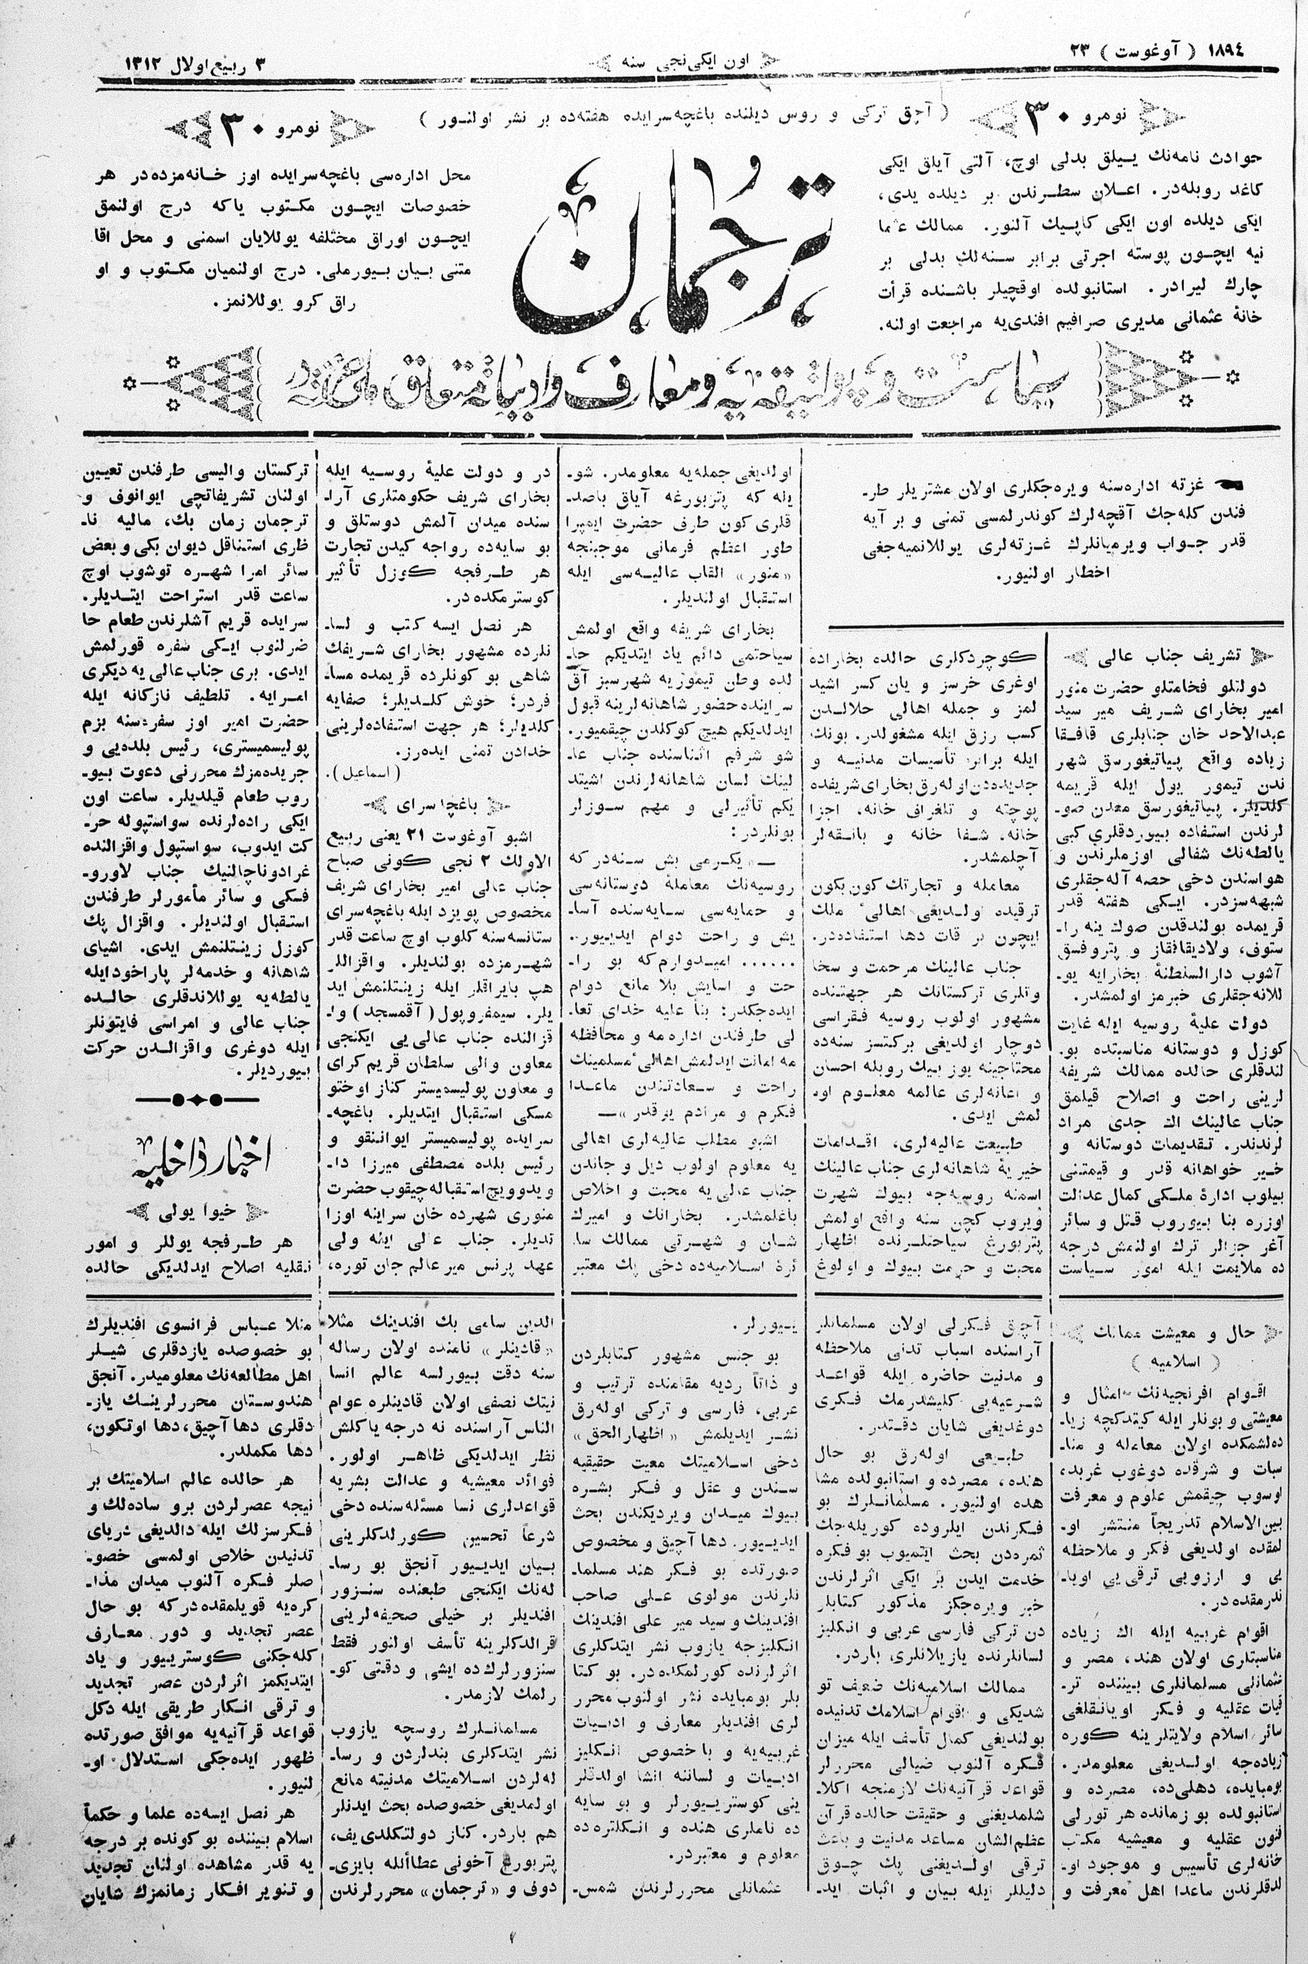 ١٨٩٤ ( آوغوست ) ٢٣
اون ایکی نجی سنه
٣ ربیع اولال ١٣١٢
نومرو ٣٠
( آچق ترکی و روس دیلنده باغچه‌سرایده هفته‌ده بر نشر اولنور )
نومرو ٣٠
حوادث نامه‌نك ییلق بدلی اوچ، آلتی آیلق ایکی
کاغد روبله‌در. اعلان سطرندن بر دیلده یدی،
ایکی دیلده اون ایکی کاپیك آلنور. ممالك عثما
نیه ایچون پوسته اجرتی برابر سنه‌لك بدلی بر
چارك لیرادر. استانبولده اوقچیلر باشنده قرأت
خانهٔ عثمانی مدیری صرافیم افندی‌یه مراجعت اولنه.
ترجمان
محل اداره‌سی باغچه‌سرایده اوز خانه‌مزده‌در هر
خصوصات ایچون مکتوب یاکه درج اولنمق
ایچون اوراق مختلفه یوللایان اسمنی و محل اقا
متنی بیان بیورملی. درج اولنمیان مکتوب و او
راق کرو یوللانمز.
غزته اداره‌سنه ویره‌جکلری اولان مشتریلر طر-
فندن کله‌جك آقچه‌لرك کوندرلمسی تمنی و بر آیه
قدر جواب ویرمیانلرك غزته‌لری یوللانمیه‌جغی
اخطار اولنیور.
تشریف جناب عالی
دولتلو فخامتلو حضرت منور
امیر بخارای شریف میر سید
عبدالاحد خان جنابلری قافقا
زیاده واقع پیاتیغورسق شهر
ندن تیمور یول ایله قریمه
کلدیلر. پیاتیغورسق معدن صو-
لرندن استفاده بیوردقلری کبی
یالطه‌نك شفالی اوزملرندن و
هواسندن دخی حصه آله‌جقلری
شبهه‌سزدر. ایکی هفته قدر
قریمده بولندقدن صوك ینه را-
ستوف، ولادیقافقاز و پتروفسق
آشوب دارالسلطنهٔ بخارایه یو-
للانه‌جقلری خبرمز اولمشدر.
دولت علیهٔ روسیه ایله غایت
کوزل و دوستانه مناسبتده بو-
لندقلری حالده ممالك شریفه
لرینی راحت و اصلاح قیلمق
جناب عالینك اك جدی مراد
لرندندر. تقدیمات دوستانه و
خیر خواهانه قدر و قیمتنی
بیلوب ادارهٔ ملکی کمال عدالت
اوزره بنا بیوروب قتل و سائر
آغر جزالر ترك اولنمش درجه
ده ملایمت ایله امور سیاست
کوچردکلری حالده بخاراده
اوغری خرسز و یان کسر اشید
لمز و جمله اهالی حلالدن
کسب رزق ایله مشغولدر. بونك
ایله برابر تأسیسات مدنیه و
جدیده‌دن اوله‌رق بخارای شریفده
پوچته و تلغراف خانه، اجزا
خانه. شفا خانه و بانقه‌لر
آچلمشدر.
معامله و تجارتك کون بکون
ترقیده اولدیغی اهالیٔ ملك
ایچون بر قات دها استفاده‌در.
جناب عالینك مرحمت و سخا
وتلری ترکستانك هر جهتنده
مشهور اولوب روسیه فقراسی
دوچار اولدیغی برکتسز سنه‌ده
محتاجینه یوز بیك روبله احسان
و اعانه‌لری عالمه معلوم او-
لمش ایدی.
طبیعت عالیه‌لری، اقدامات
خیریهٔ شاهانه‌لری جناب عالینك
اسمنه روسیه‌جه بیوك شهرت
ویروب کچن سنه واقع اولمش
پتربورغ سیاحتلرنده اظهار
محبت و حرمت بیوك و اولوغ
اولدیغی جمله‌یه معلومدر. شو-
یله که پتربورغه آیاق باصد-
قلری کون طرف حضرت ایمپرا
طور اعظم فرمانی موجبنجه
«منور» القاب عالیه‌سی ایله
استقبال اولندیلر.
بخارای شریفه واقع اولمش
سیاحتمی دائم یاد ایتدیکم حا-
لده وطن تیموریه شهرسبز آق
سراینده حضور شاهانه‌لرینه قبول
ایدلدیکم هیچ کوکلدن چیقمیور.
شو شرفم اثناسنده جناب عا-
لینك لسان شاهانه‌لرندن اشیتد
یکم تأثیرلی و مهم سوزلر
بونلردر:
— «یکرمی بش سنه‌درکه
روسیه‌نك معاملهٔ دوستانه‌سی
و حمایه‌سی سایه‌سنده آسا-
یش و راحت دوام ایدییور..
...... امیدوارم که بو را-
حت و اسایش بلا مانع دوام
ایده‌جکدر: بنا علیه خدای تعا-
لی طرفندن اداره‌مه و محافظه
مه امانت ایدلمش اهالیٔ مسلمینك
راحت و سعادتندن ماعدا
فکرم و مرادم یوقدر» —
اشبو مطلب عالیه‌لری اهالی
یه معلوم اولوب دیل و جاندن
جناب عالی‌یه محبت و اخلاص
باغلمشدر. بخارانك و امیرك
شان و شهرتی ممالك سا
ئرهٔ اسلامیه‌ده دخی پك معتبر
در و دولت علیهٔ روسیه ایله
بخارای شریف حکومتلری آرا-
سنده میدان آلمش دوستلق و
بو سایه‌ده رواجه کیدن تجارت
هر طرفجه کوزل تأثیر
کوسترمکده‌در.
هر نصل ایسه کتب و لسا-
نلرده مشهور بخارای شریفك
شاهی بو کونلرده قریمده مسا-
فردر؛ خوش کلدیلر؛ صفایه
کلدیلر؛ هر جهت استفاده‌لرینی
خدادن تمنی ایده‌رز.
(اسماعیل).
باغچه سرای
اشبو آوغوست ٢١ یعنی ربیع
الاولك ٢ نجی کونی صباح
جناب عالی امیر بخارای شریف
مخصوص پویزد ایله باغچه‌سرای
ستانسه‌سنه کلوب اوچ ساعت قدر
شهرمزده بولندیلر. واقزاللر
هپ بایراقلر ایله زینتلنمش اید
یلر. سیمفروپول ( آقمسجد ) وا-
قزالنده جناب عالی‌یی ایکنجی
معاون والی سلطان قریم کرای
و معاون پولیسمیستر کناز اوختو
مسکی استقبال ایتدیلر. باغچه-
سرایده پولیسمیستر ایواننقو و
رئیس بلده مصطفی میرزا دا-
ویدوویچ استقباله چیقوب حضرت
منوری شهرده خان سراینه اوزا
تدیلر. جناب عالی ایله ولی
عهد پرنس میر عالم جان توره،
ترکستان والیسی طرفندن تعیین
اولنان تشریفاتچی ایوانوف و
ترجمان زمان بك، مالیه نا-
ظری استناقل دیوان بکی و بعض
سائر امرا شهره توشوب اوچ
ساعت قدر استراحت ایتدیلر.
سرایده قریم آشلرندن طعام حا
ضرلنوب ایکی سفره قورلمش
ایدی. بری جناب عالی‌یه دیکری
امرایه. تلطیف نازکانه ایله
حضرت امیر اوز سفره‌سنه بزم
پولیسمیستری، رئیس بلده‌یی و
جریده‌مزك محررنی دعوت بیو-
روب طعام قیلدیلر. ساعت اون
ایکی راده‌لرنده سواستپوله حر-
کت ایدوب، سواستپول واقزالنده
غرادوناچالنیك جناب لاورو-
فسکی و سائر مأمورلر طرفندن
استقبال اولندیلر. واقزال پك
کوزل زینتلنمش ایدی. اشیای
شاهانه و خدمه‌لر پاراخود ایله
یالطه‌یه یوللاندقلری حالده
جناب عالی و امراسی فایتونلر
ایله دوغری واقزالدن حرکت
بیوردیلر.
اخبار داخلیه
خیوا یولی
هر طرفجه یوللر و امور
نقلیه اصلاح ایدلدیکی حالده
حال و معیشت ممالك
( اسلامیه )
اقوام افرنجیه‌نك امثال و
معیشتی و بونلر ایله کیتدکچه زیا-
ده‌لشمکده اولان معامله و منا-
سبات و شرقده دوغوب غربده،
اوسوب چیقمش علوم و معرفت
بین‌الاسلام تدریجاً منتشر او-
لمقده اولدیغی فکر و ملاحظه
یی و ارزویی ترقی‌یی اویا-
ندرمقده‌در.
اقوام غربیه ایله اك زیاده
مناسبتلری اولان هند، مصر و
عثمانلی مسلمانلری بیننده تر-
قیات عقلیه و فکر اویانقلغی
سائر اسلام ولایتلرینه کوره
زیاده‌جه اولدیغی معلومدر.
بومبایده، دهلی‌ده، مصرده و
استانبولده بو زمانده هر تورلی
فنون عقلیه و معیشیه مکتب
خانه‌لری تأسیس و موجود او-
لدقلرندن ماعدا اهل معرفت و
آچیق فکرلی اولان مسلمانلر
آراسنده اسباب تدنی ملاحظه
و مدنیت حاضره ایله قواعد
شرعیه‌یی کلیشدرمك فکری
دوغدیغی شایان دقتدر.
طبیعی اوله‌رق بو حال
هنده، مصرده و استانبولده مشا
هده اولنیور. مسلمانلرك بو
فکرندن ایلروده کوریله‌جك
ثمره‌دن بحث ایتمیوب بو فکره
خدمت ایدن بر ایکی اثرلرندن
خبر ویره‌جکز مذکور کتابلر
دن ترکی فارسی عربی و انکلیز
لسانلرنده یازیلانلری باردر.
ممالك اسلامیه‌نك ضعیف تو
شدیکی و اقوام اسلامك تدنیده
بولندیغی کمال تأسف ایله میزان
فکره آلنوب ضیالی محررلر
قواعد قرآنیه‌نك لازمنجه اکلا-
شلمدیغنی و حقیقت حالده قرآن
عظم‌الشان مساعد مدنیت و باعث
ترقی اولدیغنی پك چوق
دلیللر ایله بیان و اثبات اید-
ییورلر.
بو جنس مشهور کتابلردن
و ذاتاً ردیه مقامنده ترتیب و
عربی، فارسی و ترکی اوله‌رق
نشر ایدیلمش «اظهارالحق»
دخی اسلامیتك معیت حقیقیه
سندن و عقل و فکر بشره
بیوك میدان ویردیکندن بحث
ایدییور. دها آچیق و مخصوص
صورتده بو فکر هند مسلما-
نلرندن مولوی علی صاحب
افندینك و سید میر علی افندینك
انکلیزجه یازوب نشر ایتدکلری
اثرلرنده کورلمکده‌در. بو کتا
بلر بومبایده نشر اولنوب محرر
لری افندیلر معارف و ادبیات
غربیه‌یه و با خصوص انکلیز
ادبیات و لساننه آشنا اولدقلر
ینی کوستریورلر و بو سایه
ده ناملری هنده و انکلتره‌ده
معلوم و معتبردر.
عثمانلی محررلرندن شمس-
الدین سامی بك افندینك مثلا
«قادینلر» نامنده اولان رساله
سنه دقت بیورلسه عالم انسا
نیتك نصفی اولان قادینلره عوام
الناس آراسنده نه درجه یاکلش
نظر ایدلدیکی ظاهر اولور.
فوائد معیشیه و عدالت بشریه
قواعدلری نسا مسئله‌سنده دخی
شرعاً تحسین کورلدکلرینی
بیان ایدییور آنجق بو رسا-
له‌نك ایکنجی طبعنده سنزور
افندیلر بر خیلی صحیفه‌لرینی
قرالدکلرینه تأسف اولنور فقط
سنزورلرك ده ایشی و دقتی کو-
رلمك لازمدر.
مسلمانلرك روسچه یازوب
نشر ایتدکلری بندلردن و رسا-
له‌لردن اسلامیتك مدنیته مانع
اولمدیغی خصوصده بحث ایدنلر
هم باردر. کناز دولتکلدی‌یف،
پتربورغ آخونی عطاألله بایزی-
دوف و «ترجمان» محررلرندن
منلا عباس فرانسوی افندیلرك
بو خصوصده یازدقلری شیلر
اهل مطالعه‌نك معلومیدر. آنجق
هندوستان محررلرینك یاز-
دقلری دها آچیق، دها اوتکون،
دها مکملدر.
هر حالده عالم اسلامیتك بر
نیجه عصرلردن برو ساده‌لك و
فکرسزلك ایله دالدیغی دریای
تدنیدن خلاص اولمسی خصو-
صلر فکره آلنوب میدان مذا-
کره‌یه قویلمقده‌درکه بو حال
عصر تجدید و دور معارف
کله‌جکنی کوستریور و یاد
ایتدیکمز اثرلردن عصر تجدید
و ترقی انکار طریقی ایله دکل
قواعد قرآنیه‌یه موافق صورتده
ظهور ایده‌جکی استدلال او-
لنیور.
هر نصل ایسه‌ده علما و حکماٴ
اسلام بیننده بو کونده بر درجه
یه قدر مشاهده اولنان تجدید
و تنویر افکار زمانمزك شایان